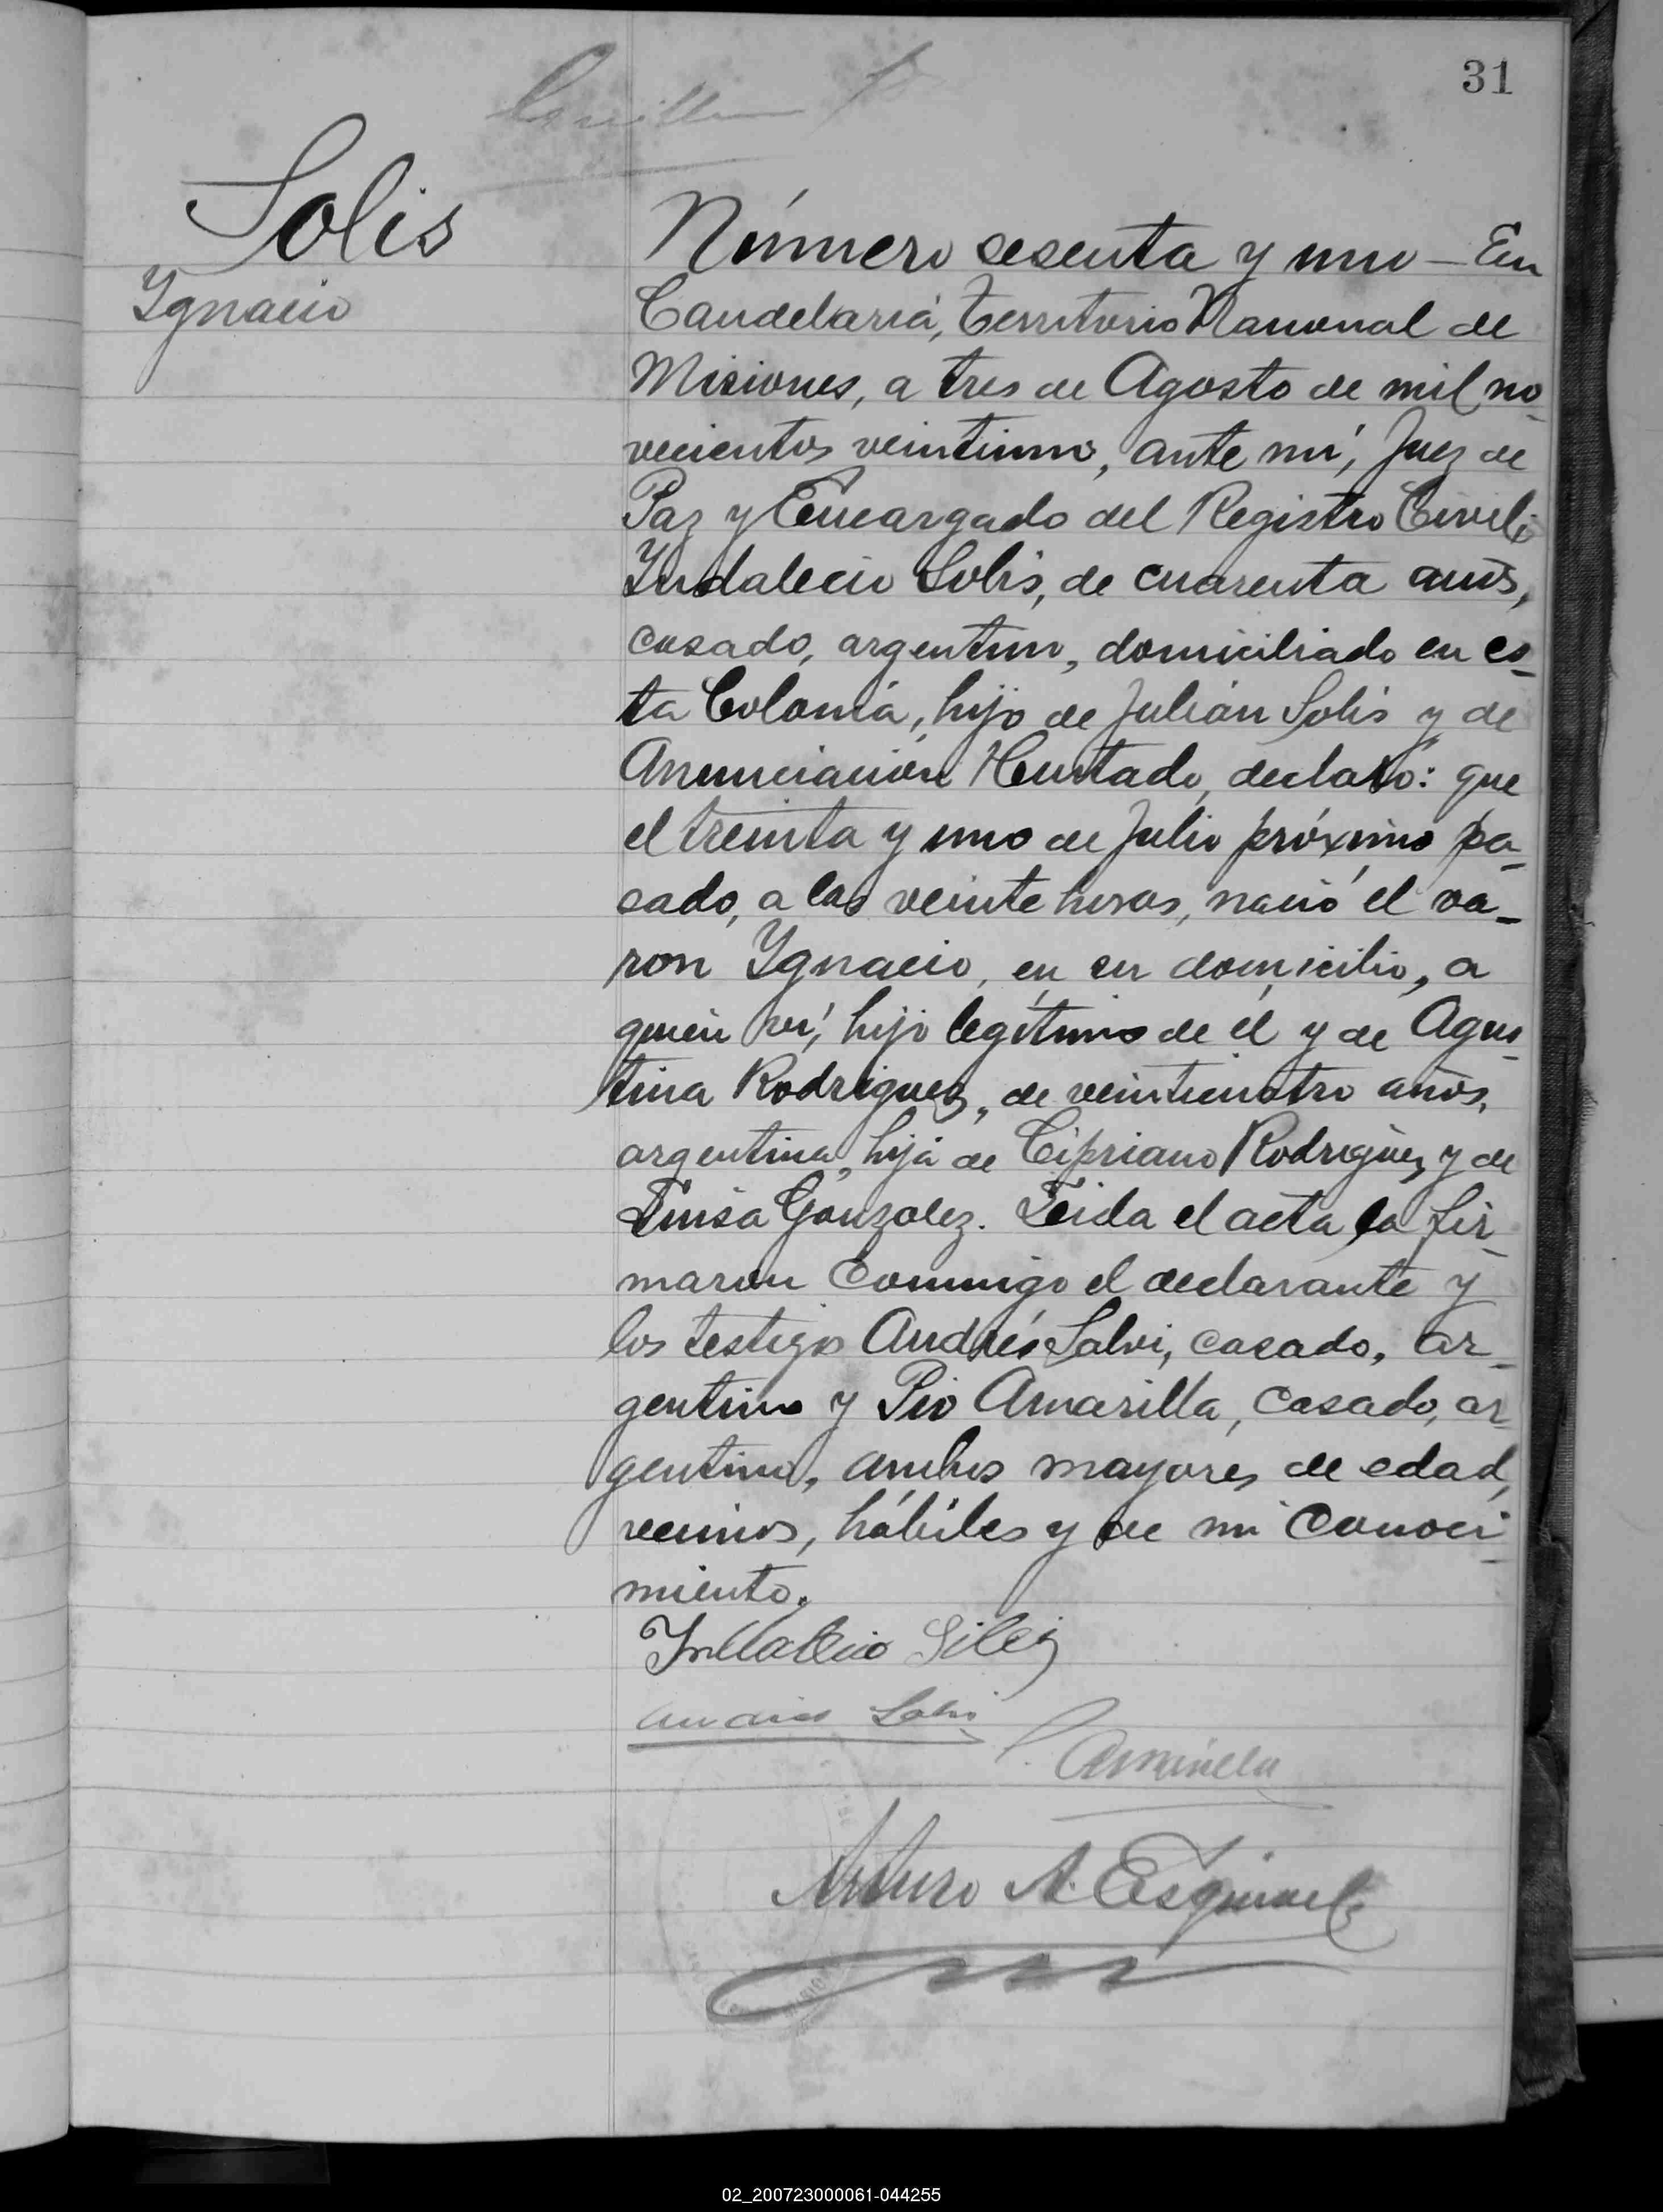 31
Solis
Ygnacio
Número sesenta y uno - En
Candelaria, Territorio Nacional de
Misiones, a tres de Agosto de mil no-
vecientos veintiuno, ante mí, Juez de
Paz y Encargado del Registro Civil;
Yndalecio Solis, de cuarenta años,
casado, argentino, domiciliado en es-
ta Colonia, hijo de Julián Solis y de
Anunciación Hurtado, declaró: que
el treinta y uno de Julio próximo pa-
sado, a las veinte horas, nació el va-
ron Ygnacio, en su domicilio, a
quien ví, hijo legítimo de él y de Agus-
tina Rodriguez, de veinticuatro años,
argentina, hija de Cipriano Rodriguez y de
Luisa Gonzalez. Leida el acta la fir-
maron conmigo el declarante y
los testigos Andrés Salvi, casado, ar-
gentino y Pio Amarilla, casado, ar-
gentino, ambos mayores de edad,
vecinos, hábiles y de mi conoci-
miento.
Yndalecio Solis
Andres Salvi
P. Amarilla
Arturo A. Esquivel
02_200723000061-044255